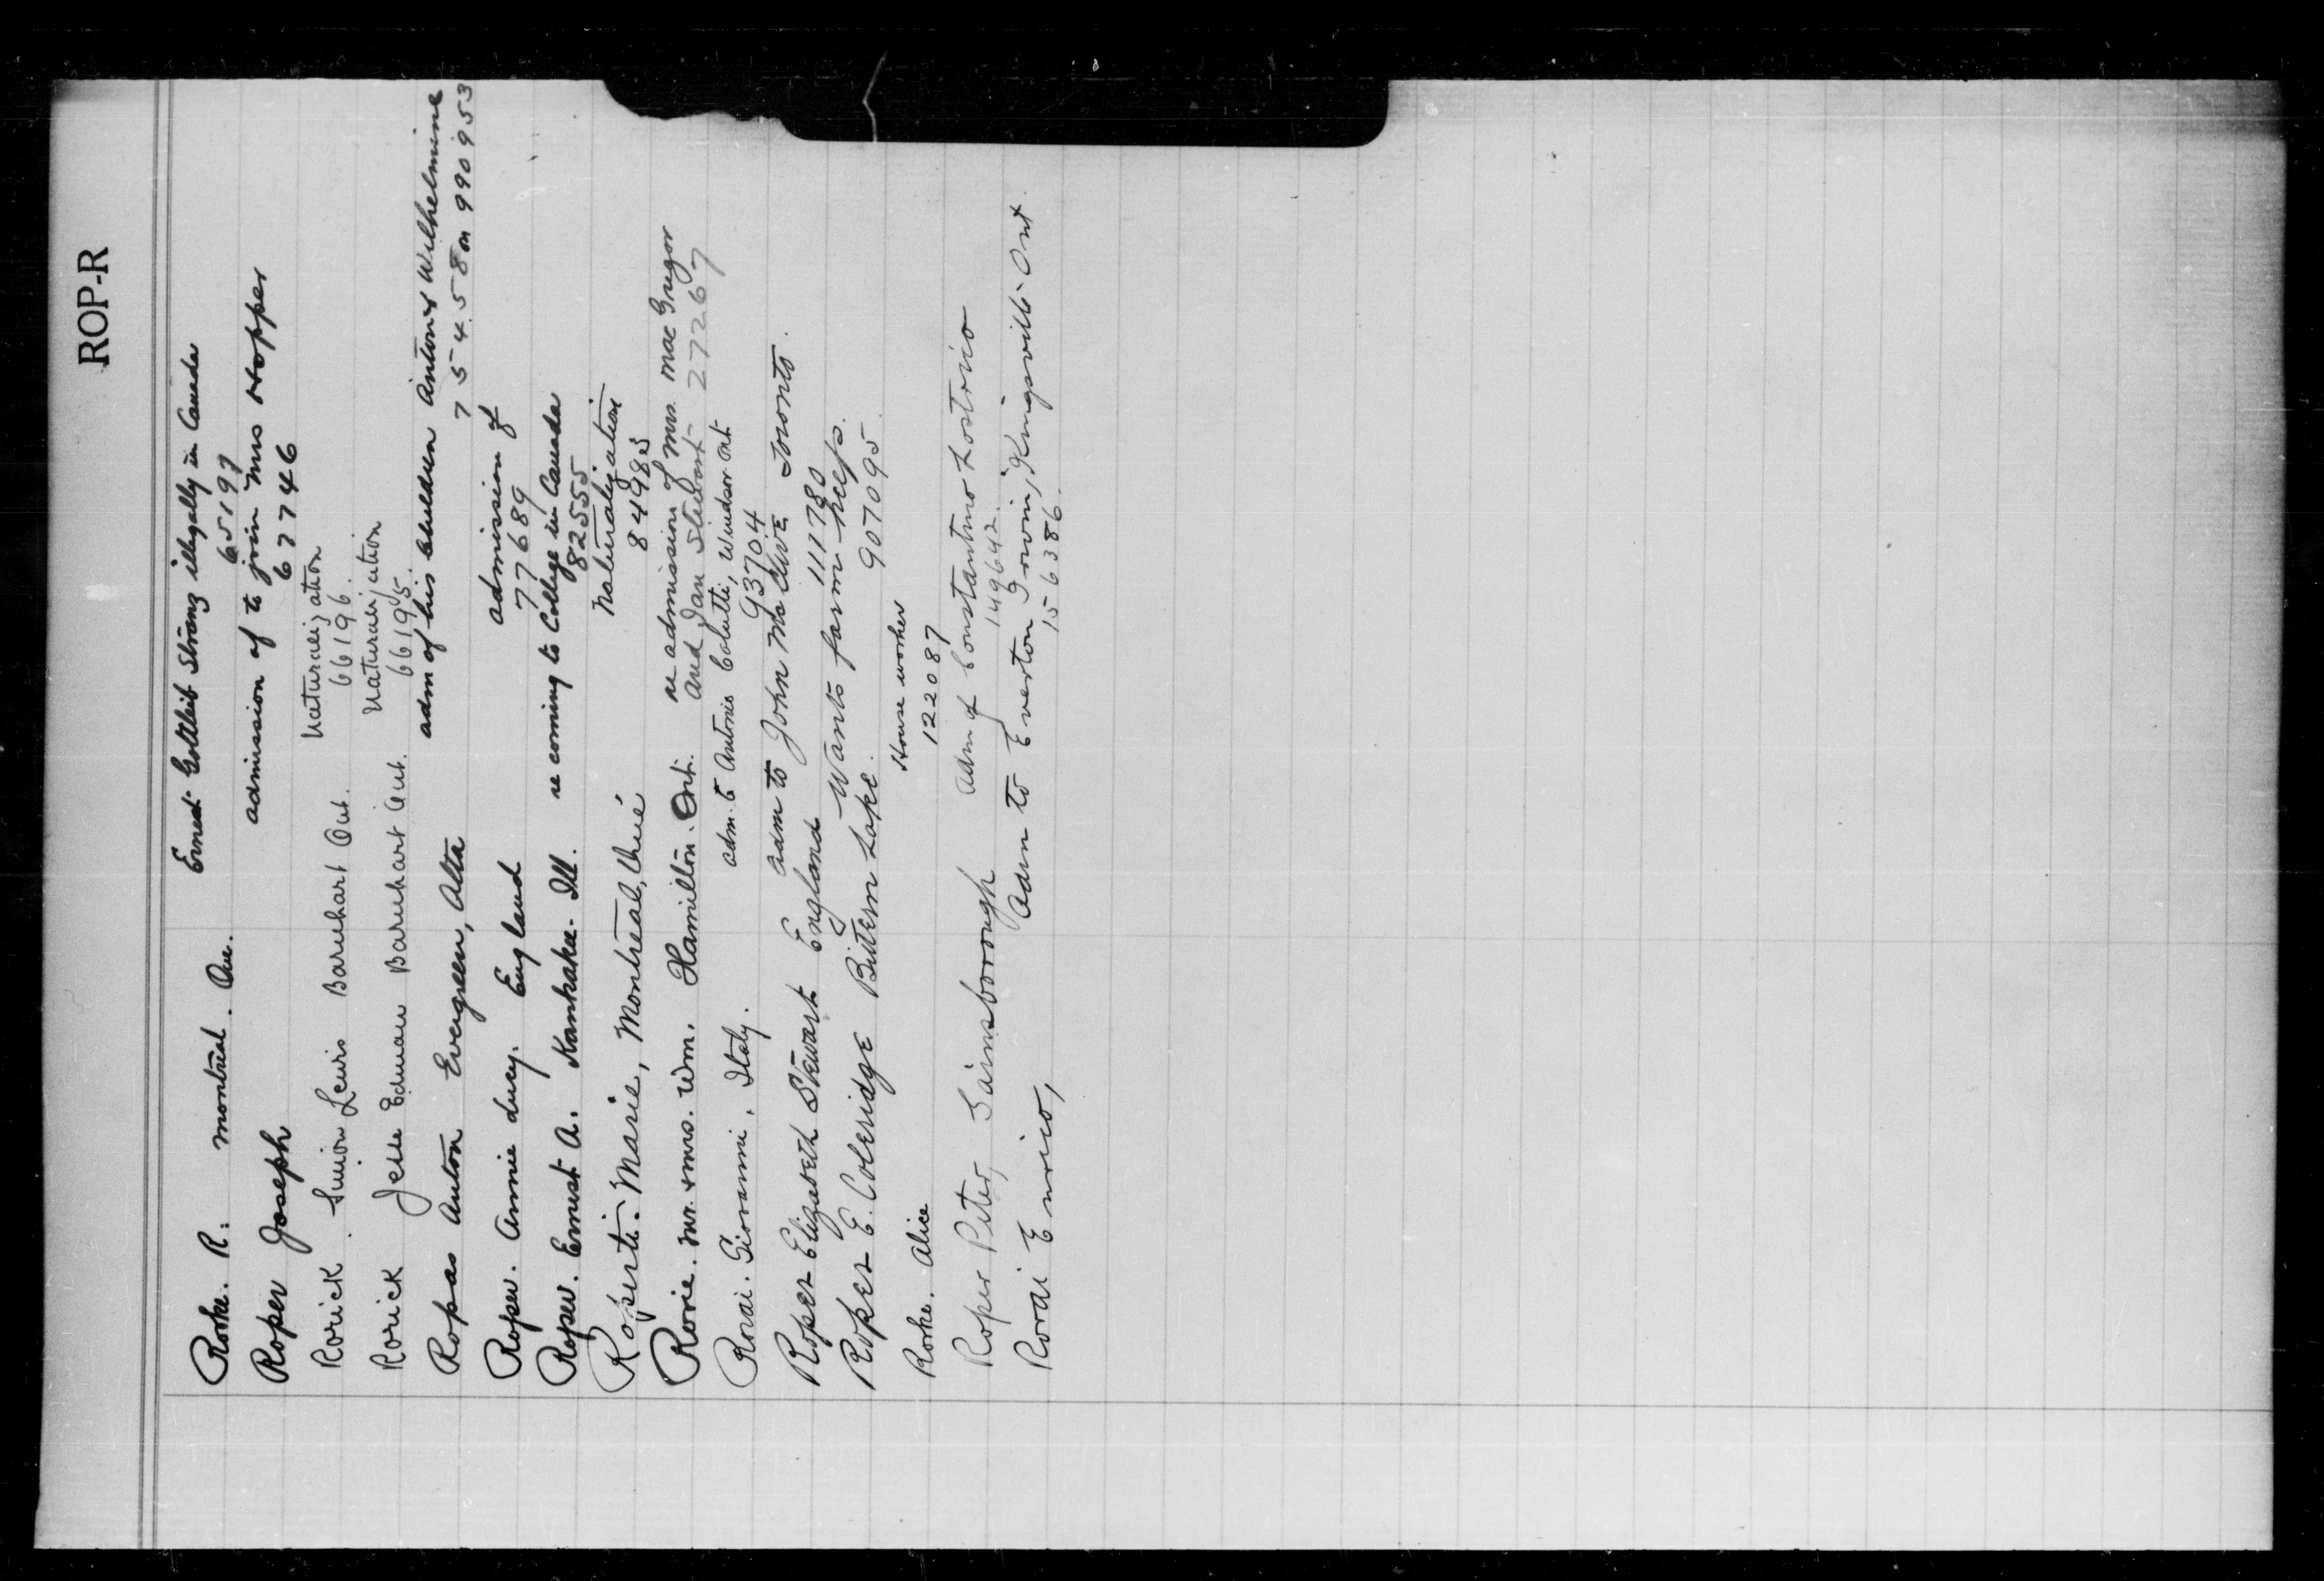 ROP-R
Rorke. R. Montreal. Que. Ernest Gottleib Stranz illegally in Canada
65197
Roper Joseph admission of to join Mrs Hopper
67746
Rorick. Simion Lewis Barnhart Ont. Naturalization
66196.
Rorick Jesse Edman Barnhart Ont. Naturalization
66195.
Ropas Anton Evergreen, Alta adm of his children Anton & Wilhelmine
75458 on 990953
Roper. Annie Lucy. England admission of
77689
Roper. Ernest A. Kankakee. Ill. re coming to College in Canada
82555
Roperti. Marie, Montreal, Que Naturalization
84985
Rorie. Mr. & Mrs. Wm. Hamilton. Ont. re admission of Mrs. MacGregor
and Ian Stewart 272267
Rorai. Giovanni, Italy. adm. to Antonio Colutti, Windsor Ont
93704
Roper Elizabeth Stewart England adm to John McAlive Toronto.
111780
Roper E. Coleridge Bittern Lake. Wants farm help.
907095
Rorke. Alice House worker
122087
Roper Peter, Gainsborough adm of Constantino Lostrico
149642.
Rorai Enrico, Adm to Everton Irwin, Kingsville Ont
156386.